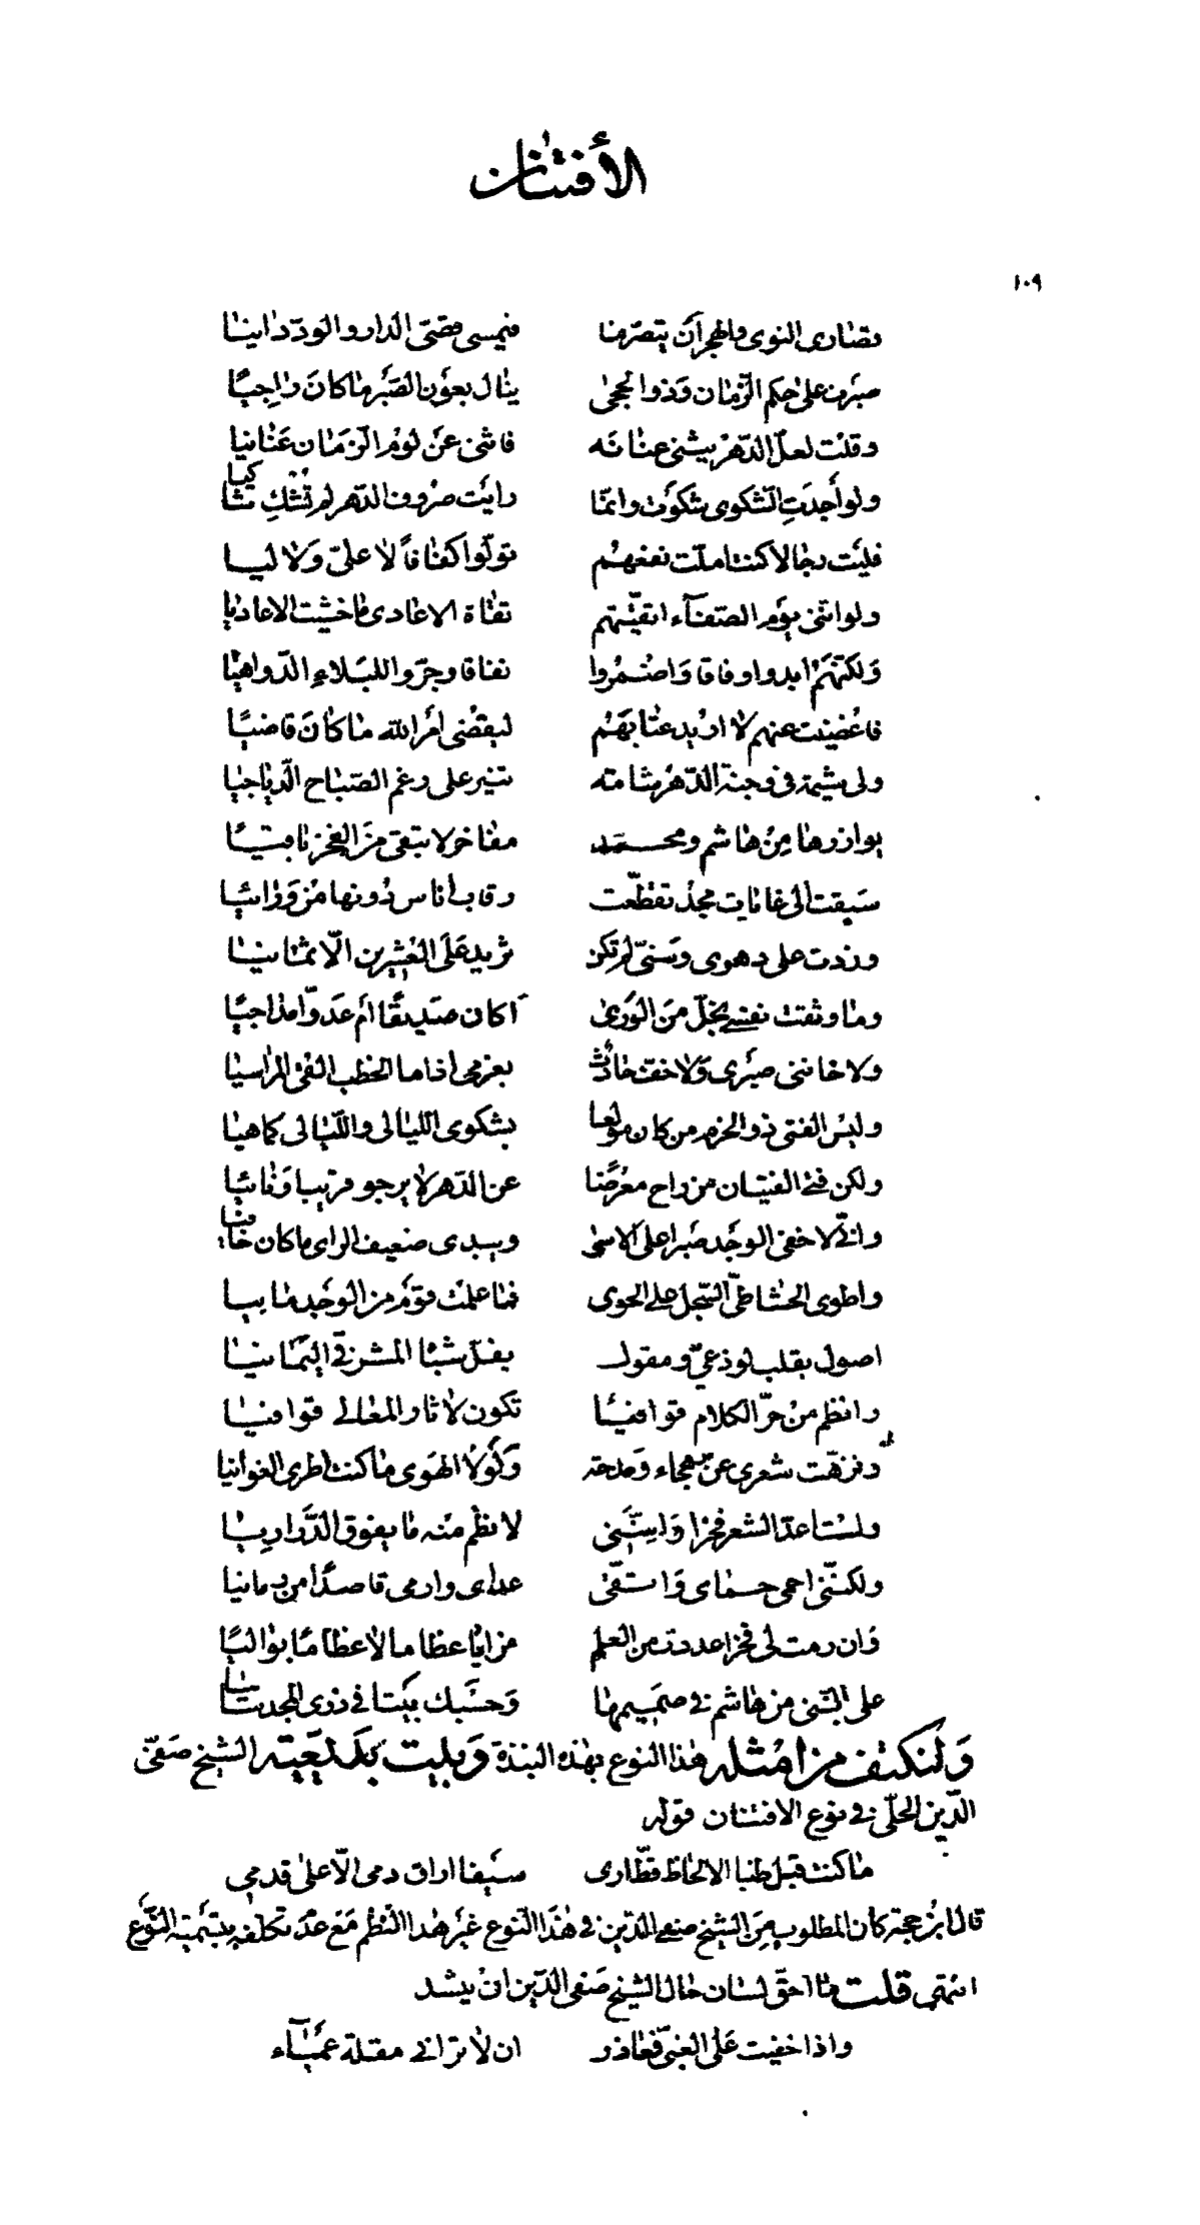 الأفتنان
١٠٩
قصارى النوى والهجر أن يتصرّما فيمسى قصىّ الدار والودّ دانيا
صبرت على حكم الزّمان وذو الحجى ينال بعون الصّبر ما كان راجيًا
وقلت لعلّ الدّهر يثنى عنانه فاثنى عن لوم الزّمان عنانيا
ولو أجدت الشكوى شكوت وانّما رايت صروف الدّهر لم تشك شاكيا
فليت رجالا كنت املت نفعهم تولّوا كفافًا لا علىّ ولا ليا
ولو انّنى يوم الصّفاء اتقيتهم تقاة الاعادى ما خشيت الاعاديا
ولكنّهم ابدوا وفاقا واضمروا نفاقا وجرّوا للبلاء الدّواهيا
فاغضيت عنهم لا اريد عتابهم ليقضى أمر الله ما كان قاضيًا
ولى شيمة فى وجنة الدّهر شامة تنير على رغم الصّباح الدّياجيا
يوازرها من هاشم ومحمد مفاخر لا تبقى من الفخر باقيًا
سبقت الى غايات مجد تقطّعت رقاب اناس دونها من ورائيا
وزدت على دهرى وسنّى لم تكن تزيد على العشرين الّا ثمانيا
وما وثقت نفسى بخلّ من الورى اكان صديقًا أم عدوّا مداجيًا
ولا خاننى صبرى ولا خفت حادث بعزمى اذا ما الخطب القى المراسيا
وليس الفتى ذو الحزم من كان مولعا بشكوى الليالى والليالى كما هيا
ولكن فتى الفتيان من راح معرضًا عن الدّهر لا يرجو قريبا ونائيا
وانّى لاخفى الوجد صبرا على الاسى ويبدى ضعيف الراى ما كان خافيا
واطوى الحشا طىّ السّجل على الجوى فما علمت قوم من الوجد ما بيا
اصول بقلب لوذعىّ ومقول يفلّ شبا المشرفىّ اليمانيا
وانظم من حرّ الكلام قوافيًا تكون لآثار المعالى قوافيا
ونزهت شعرى عن هجاء ومدحة ولولا الهوى ما كنت اطرى الغوانيا
ولست اعدّ الشعر فخرا وانّنى لانظم منه ما يفوق الدّراريا
ولكنّنى احمى حماى واتّقى عداى وارمى قاصدًا من رمانيا
وان رمت لى فخرا عددت من العلى مزايا عظاما لا عظامًا بواليًا
على انّنى من هاشم فى صميمها وحسبك بيتا فى ذرى المجد ساميا
ولنكتف من امثلة هذا النوع بهذه النبذة وبيت بديعيّة الشيخ صفىّ
الدّين الحلّى فى نوع الافتنان قوله
ما كنت قبل ظبا الالحاظ قطّ ارى سيفا اراق دمى الّا على قدمى
قال ابن حجة كان المطلوب من الشيخ صفى الدّين فى هذا النوع غير هذا النظم مع عدم تكلفه بتسمية النّوع
انتهى قلت ما احقّ لسان حال الشيخ صفى الدّين ان ينشد
واذا خفيت على الغبىّ فعاذر ان لا ترانى مقلة عمياء